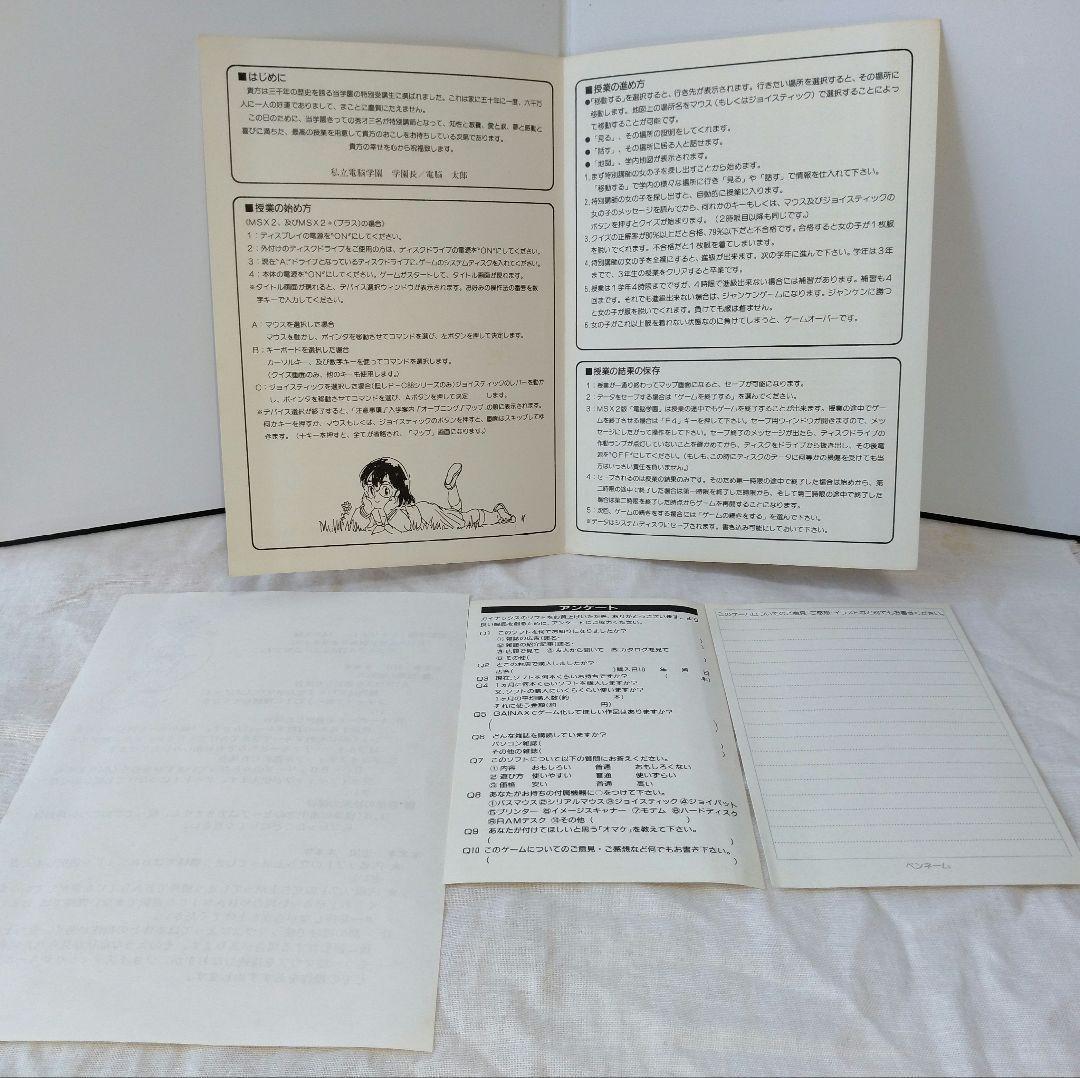 ■はじめに
貴方は三千年の歴史を誇る当学園の特別受講生に選ばれました。これは実に五十年に一度、六千万
人に一人の好運でありまして、まことに慶賀にたえません。
この日のために、当学園きっての秀才三名が特別講師となって、知性と教養、愛と涙、夢と感動と
喜びに満ちた、最高の授業を用意して貴方のおこしをお待ちしている次第であります。
貴方の幸せを心から祝福致します。
私立電脳学園 学園長／電脳 太郎
■授業の始め方
(MSX2、及びMSX2+(プラス)の場合)
1：ディスプレイの電源を"ON"にしてください。
2：外付けのディスクドライブをご使用の方は、ディスクドライブの電源を"ON"にしてください。
3：現在"A:"ドライブとなっているディスクドライブに、ゲームのシステムディスクを入れてください。
4：本体の電源を"ON"にしてください。ゲームがスタートして、タイトル画面が現れます。
※タイトル画面が現れると、デバイス選択ウィンドウが表示されます。お好みの操作法の番号を数
字キーで入力してください。
A：マウスを選択した場合
マウスを動かし、ポインタを移動させてコマンドを選び、左ボタンを押して決定します。
B：キーボードを選択した場合
カーソルキー、及び数字キーを使ってコマンドを選択します。
(クイズ画面のみ、他のキーも使用します。)
C：ジョイスティックを選択した場合(但しPC88シリーズのみ)ジョイスティックのレバーを動か
し、ポインタを移動させてコマンドを選び、Aボタンを押して決定 します。
※デバイス選択が終了すると、「注意事項」「入学案内」「オープニング」「マップ」の順に表示されます。
何かキーを押すか、マウスもしくは、ジョイスティックのボタンを押すと、画面はスキップしてゆ
きます。(+キーを押すと、全てが省略され、「マップ」画面になります。)
■授業の進め方
●「移動する」を選択すると、行き先が表示されます。行きたい場所を選択すると、その場所に
移動します。地図上の場所名をマウス(もしくはジョイスティック)で選択することによっ
て移動することが可能です。
●「見る」、その場所の説明をしてくれます。
●「話す」、その場所に居る人と話せます。
●「地図」、学内地図が表示されます。
1.まず特別講師の女の子を捜し出すことから始めます。
「移動する」で学内の様々な場所に行き「見る」や「話す」で情報を仕入れて下さい。
2.特別講師の女の子を探し出すと、自動的に授業に入ります。
女の子のメッセージを読んでから、何れかのキーもしくは、マウス及びジョイスティックの
ボタンを押すとクイズが始まります。(2時限目以降も同じです。)
3.クイズの正解率が80%以上だと合格、79%以下だと不合格です。合格すると女の子が1枚服
を脱いでくれます。不合格だと1枚服を着てしまいます。
4.特別講師の女の子を全裸にすると、進級が出来ます。次の学年に進んで下さい。学年は3年
までで、3年生の授業をクリアすると卒業です。
5.授業は1学年4時限までですが、4時限で進級出来ない場合には補習があります。補習も4
回まです。それでも進級出来ない場合は、ジャンケンゲームになります。ジャンケンに勝つ
と女の子が服を脱いでくれます。負けても服は着ません。
6.女の子がこれ以上服を着れない状態なのに負けてしまうと、ゲームオーバーです。
■授業の結果の保存
1：授業が一通り終わってマップ画面になると、セーブが可能になります。
2：データをセーブする場合は「ゲームを終了する」を選んでください。
3：MSX2版「電脳学園」は授業の途中でもゲームを終了することが出来ます。授業の途中でゲー
ムを終了させる場合は「F4」キーを押して下さい。セーブ用ウィンドウが開きますので、メッ
セージにしたがって操作をして下さい。セーブ終了のメッセージが出たら、ディスクドライブの
作動ランプが点灯していないことを確かめてから、ディスクをドライブから抜き出し、その後電
源を"OFF"にしてください。(もしも、この時にディスクのデータに何等かの損傷を受けても当
方はいっさい責任を負いません。)
4：セーブされるのは授業の結果のみです。そのため第一時限の途中で終了した場合は始めから、第
二時限の途中で終了した場合は第一時限を終了した時限から、そして第三時限の途中で終了した
場合は第二時限を終了した時点からゲームを再開することになります。
5：次回、ゲームの続きをする場合には「ゲームの続きをする」を選んで下さい。
※データはシステムディスクにセーブされます。書き込み可能にしておいて下さい。
アンケート
ガイナックスのソフトをお買上げいただき、ありがとうございます。より
良い製品を創るために、アンケートにご協力ください。
Q1 このソフトを何でお知りになりましたか?
①雑誌の広告(誌名- )
②雑誌の紹介記事(誌名- )
③店頭で見て ④友人から聞いて ⑤カタログを見て
⑥その他( )
Q2 どこのお店で購入しましたか?
店名( )購入日(H 年 月 日)
Q3 現在、ソフトを何本くらいお持ちですか? ( 本)
Q4 1ヵ月に何本くらいソフトを購入しますか?
又、ソフトの購入にいくらくらい使いますか?
1ヶ月の平均購入数(約 本)
それに使う金額(約 円)
Q5 GAINAXでゲーム化してほしい作品はありますか?
( )
Q6 どんな雑誌を購読していますか?
パソコン雑誌( )
その他の雑誌( )
Q7 このソフトについて以下の質問にお答えください。
①内容 おもしろい 普通 おもしろくない
②遊び方 使いやすい 普通 使いずらい
③価格 安い 普通 高い
Q8 あなたがお持ちの付属機器に○をつけて下さい。
①バスマウス②シリアルマウス③ジョイスティック④ジョイパット
⑤プリンター ⑥イメージスキャナー ⑦モデム ⑧ハードディスク
⑨RAMデスク ⑩その他( )
Q9 あなたが付けてほしいと思う「オマケ」を教えて下さい。
( )
Q10 このゲームについてのご意見・ご感想など何でもお書き下さい。
( )
このゲームについてのご意見、ご感想、イラストなど何でもお書きください。
ペンネーム